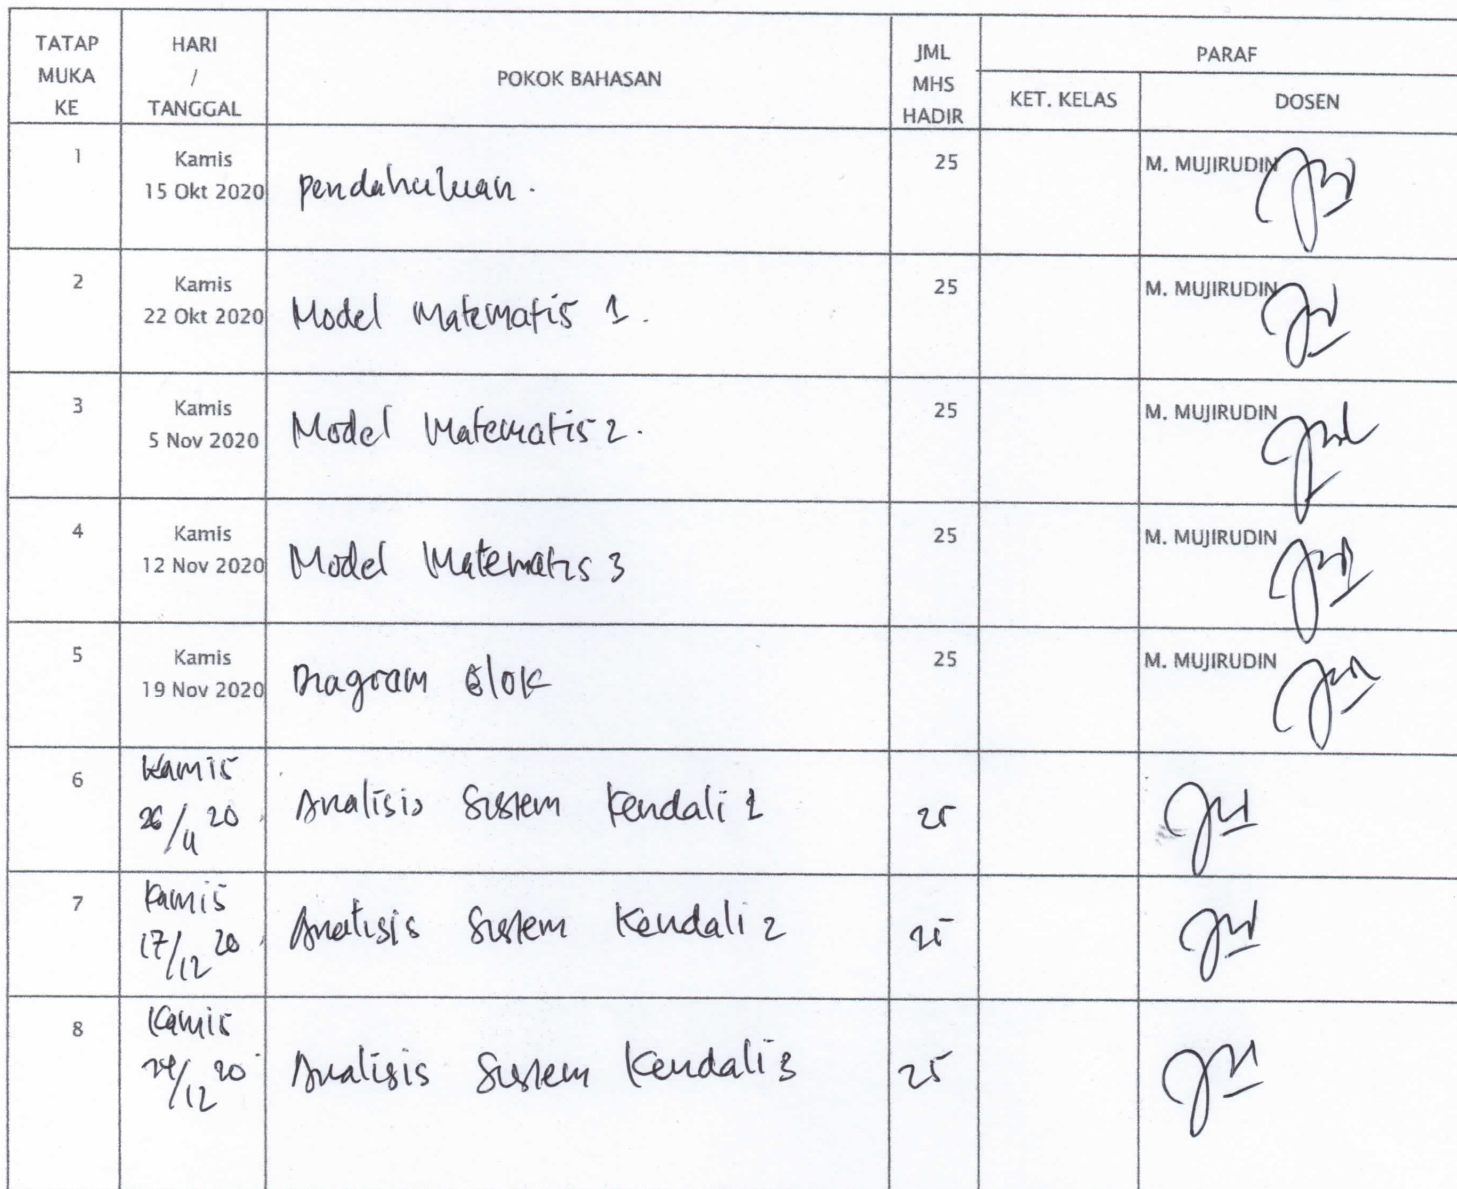 TATAP MUKA KE
HARI / TANGGAL
POKOK BAHASAN
JML MHS HADIR
PARAF
KET. KELAS
DOSEN
1
Kamis
15 Okt 2020
Pendahuluan.
25
M. MUJIRUDIN
2
Kamis
22 Okt 2020
Model Matematis 1.
25
M. MUJIRUDIN
3
Kamis
5 Nov 2020
Model Matematis 2.
25
M. MUJIRUDIN
4
Kamis
12 Nov 2020
Model Matematis 3
25
M. MUJIRUDIN
5
Kamis
19 Nov 2020
Diagram Blok
25
M. MUJIRUDIN
6
Kamis
26/11 20
Analisis Sistem Kendali 1
25
7
Kamis
17/12 20
Analisis Sistem Kendali 2
25
8
Kamis
24/12 20
Analisis Sistem Kendali 3
25